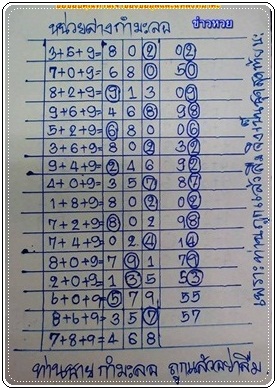 หน่วยล่างกำมะลอ
ข่าวหวย
3+6+9= 8 0 2 02
7+0+9= 6 8 0 50
8+2+9= 9 1 3 09
9+6+9= 4 6 8 98
5+2+9= 6 8 0 06
3+6+9= 8 0 2 32
9+4+9= 2 4 6 92
4+0+9= 3 5 7 87
1+8+9= 8 0 2 02
7+2+9= 8 0 2 98
7+4+9= 0 2 4 14
8+0+9= 7 9 1 79
2+0+9= 1 3 5 53
6+0+9= 5 7 9 55
8+6+9= 3 5 7 57
7+8+9= 4 6 8
ท่านชายกำมะลอ